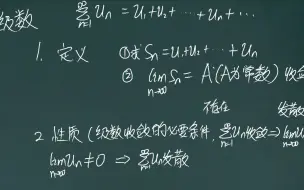 级数 ∑_{n=1}^{∞} Un = U1+U2+…+Un+…
1. 定义 ① 求 Sn = U1+U2+…+Un
② lim_{n→∞} Sn = A (A为常数) 收
不存在 发散
2. 性质 (级数收敛的必要条件, ∑_{n=1}^{∞} Un收敛 ⇒ lim_{n→∞} U
lim_{n→∞} Un ≠ 0 ⇒ ∑_{n=1}^{∞} Un发散